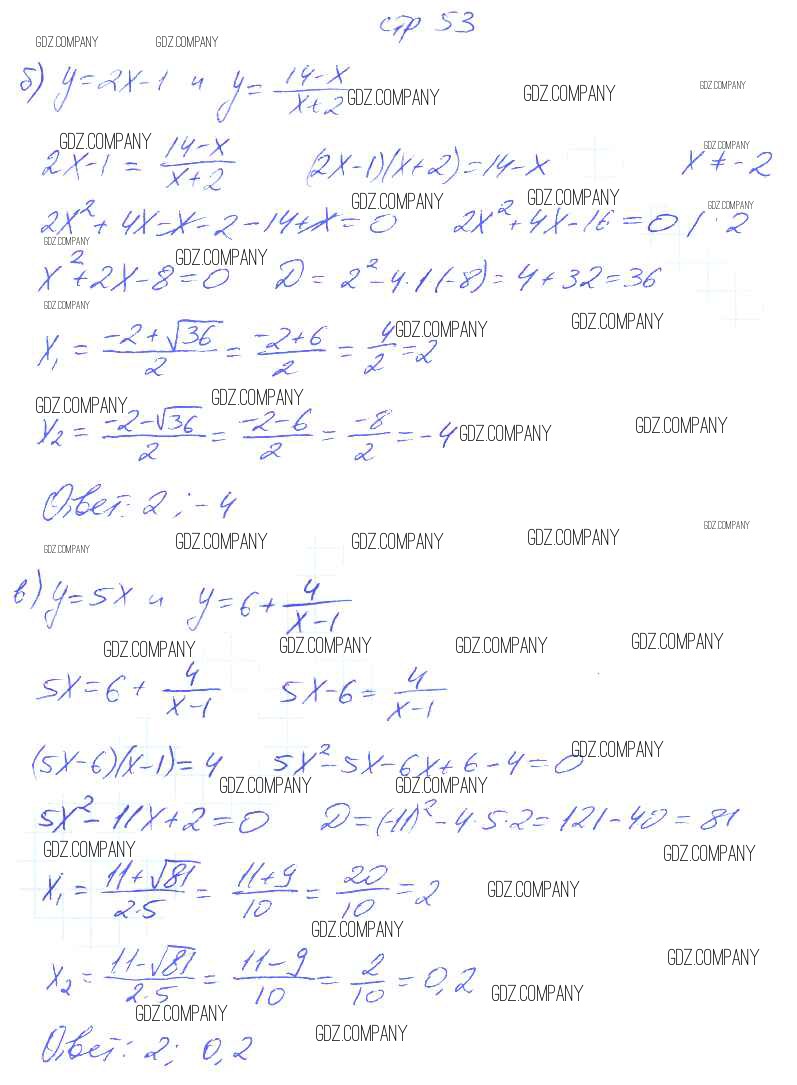 стр 53
GDZ.COMPANY GDZ.COMPANY
б) y=2x-1 и y=\frac{14-x}{x+2} GDZ.COMPANY GDZ.COMPANY GDZ.COMPANY
GDZ.COMPANY GDZ.COMPANY
2x-1=\frac{14-x}{x+2} (2x-1)(x+2)=14-x x≠-2
GDZ.COMPANY GDZ.COMPANY GDZ.COMPANY
2x²+4x-x-2-14+x=0 2x²+4x-16=0 | · 2
GDZ.COMPANY GDZ.COMPANY
x²+2x-8=0 D=2²-4·1(-8)=4+32=36
GDZ.COMPANY
x₁=\frac{-2+√36}{2}=\frac{-2+6}{2}=\frac{4}{2}=2 GDZ.COMPANY GDZ.COMPANY
GDZ.COMPANY GDZ.COMPANY
x₂=\frac{-2-√36}{2}=\frac{-2-6}{2}=\frac{-8}{2}=-4 GDZ.COMPANY GDZ.COMPANY
Ответ: 2; -4
GDZ.COMPANY GDZ.COMPANY GDZ.COMPANY GDZ.COMPANY GDZ.COMPANY
в) y=5x и y=6+\frac{4}{x-1}
GDZ.COMPANY GDZ.COMPANY GDZ.COMPANY GDZ.COMPANY
5x=6+\frac{4}{x-1} 5x-6=\frac{4}{x-1}
(5x-6)(x-1)=4 5x²-5x-6x+6-4=0 GDZ.COMPANY
GDZ.COMPANY GDZ.COMPANY
5x²-11x+2=0 D=(-11)²-4·5·2=121-40=81
GDZ.COMPANY GDZ.COMPANY
x₁=\frac{11+√81}{2·5}=\frac{11+9}{10}=\frac{20}{10}=2 GDZ.COMPANY
GDZ.COMPANY
x₂=\frac{11-√81}{2·5}=\frac{11-9}{10}=\frac{2}{10}=0,2 GDZ.COMPANY GDZ.COMPANY
GDZ.COMPANY GDZ.COMPANY
Ответ: 2; 0,2